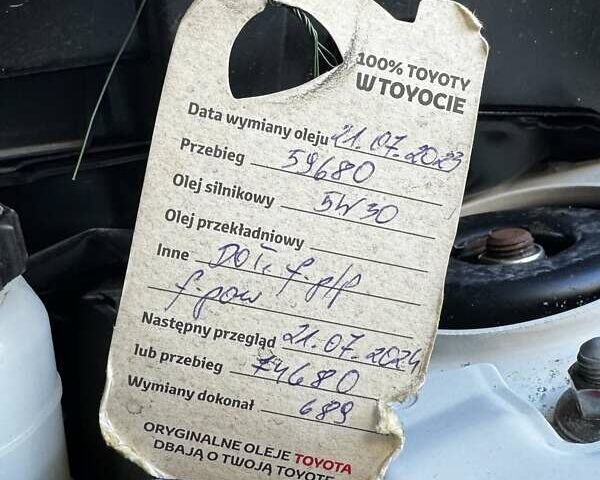 100% TOYOTY
W TOYOCIE
Data wymiany oleju 21.07.2023
Przebieg 59680
Olej silnikowy 5W30
Olej przekładniowy
Inne DOT, f. p/p
f. pow
Następny przegląd 21.07.2024
lub przebieg 74680
Wymiany dokonał 689
ORYGINALNE OLEJE TOYOTA
DBAJĄ O TWOJĄ TOYOTĘ